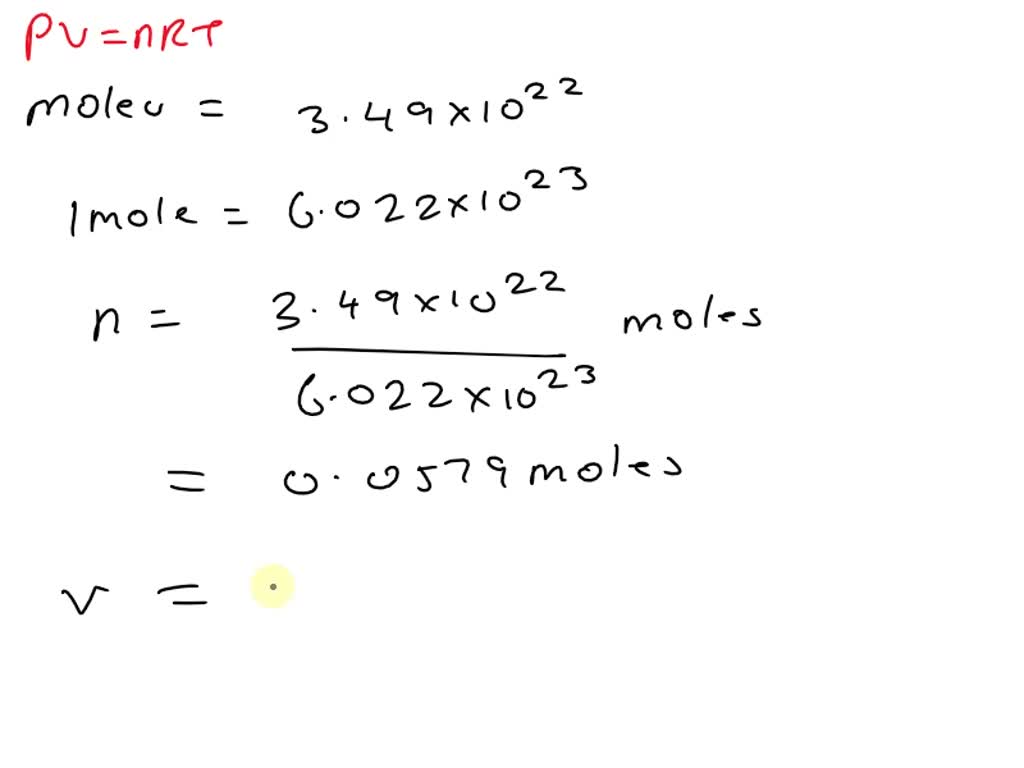 PV=nRT
molecu = 3.49×10²²
1mole = 6.022×10²³
n = 3.49×10²² / 6.022×10²³ moles
= 0.0579moles
V =